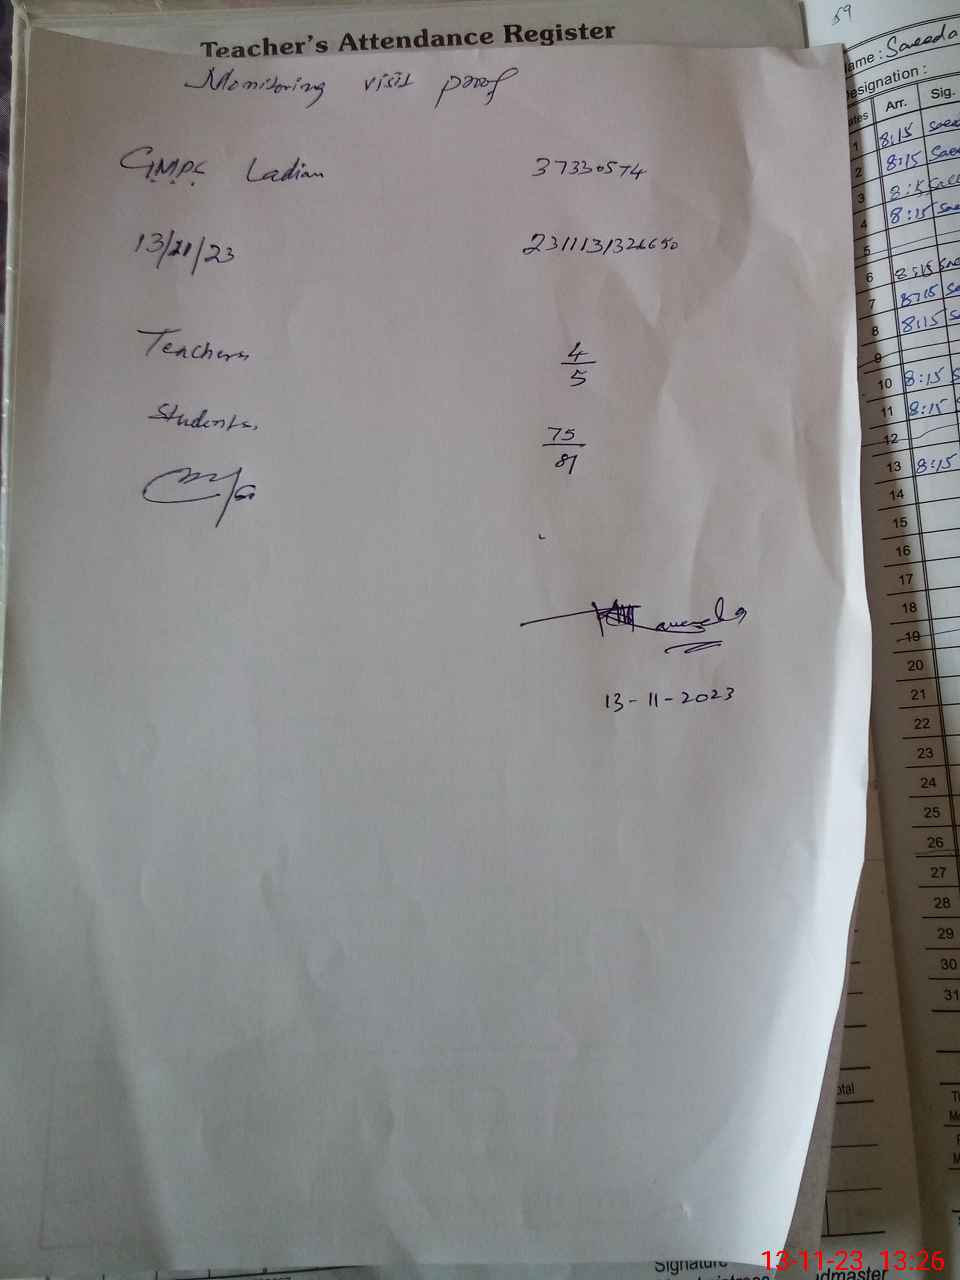 Teacher's Attendance Register
Monitoring visit proof
G.M.P.S Ladian 37330574
13/11/23 2311131326650
Teachers 4/5
Students 75/81
13-11-2023
59
ame: Saeeda
esignation:
ates Arr. Sig.
1 8:15
2 8:15
3 8:15
4 8:15
5
6 8:15
7 8:15
8 8:15
9
10 8:15
11 8:15
12
13 8:15
14
15
16
17
18
19
20
21
22
23
24
25
26
27
28
29
30
31
otal
Signature
dmaster
13-11-23 13:26